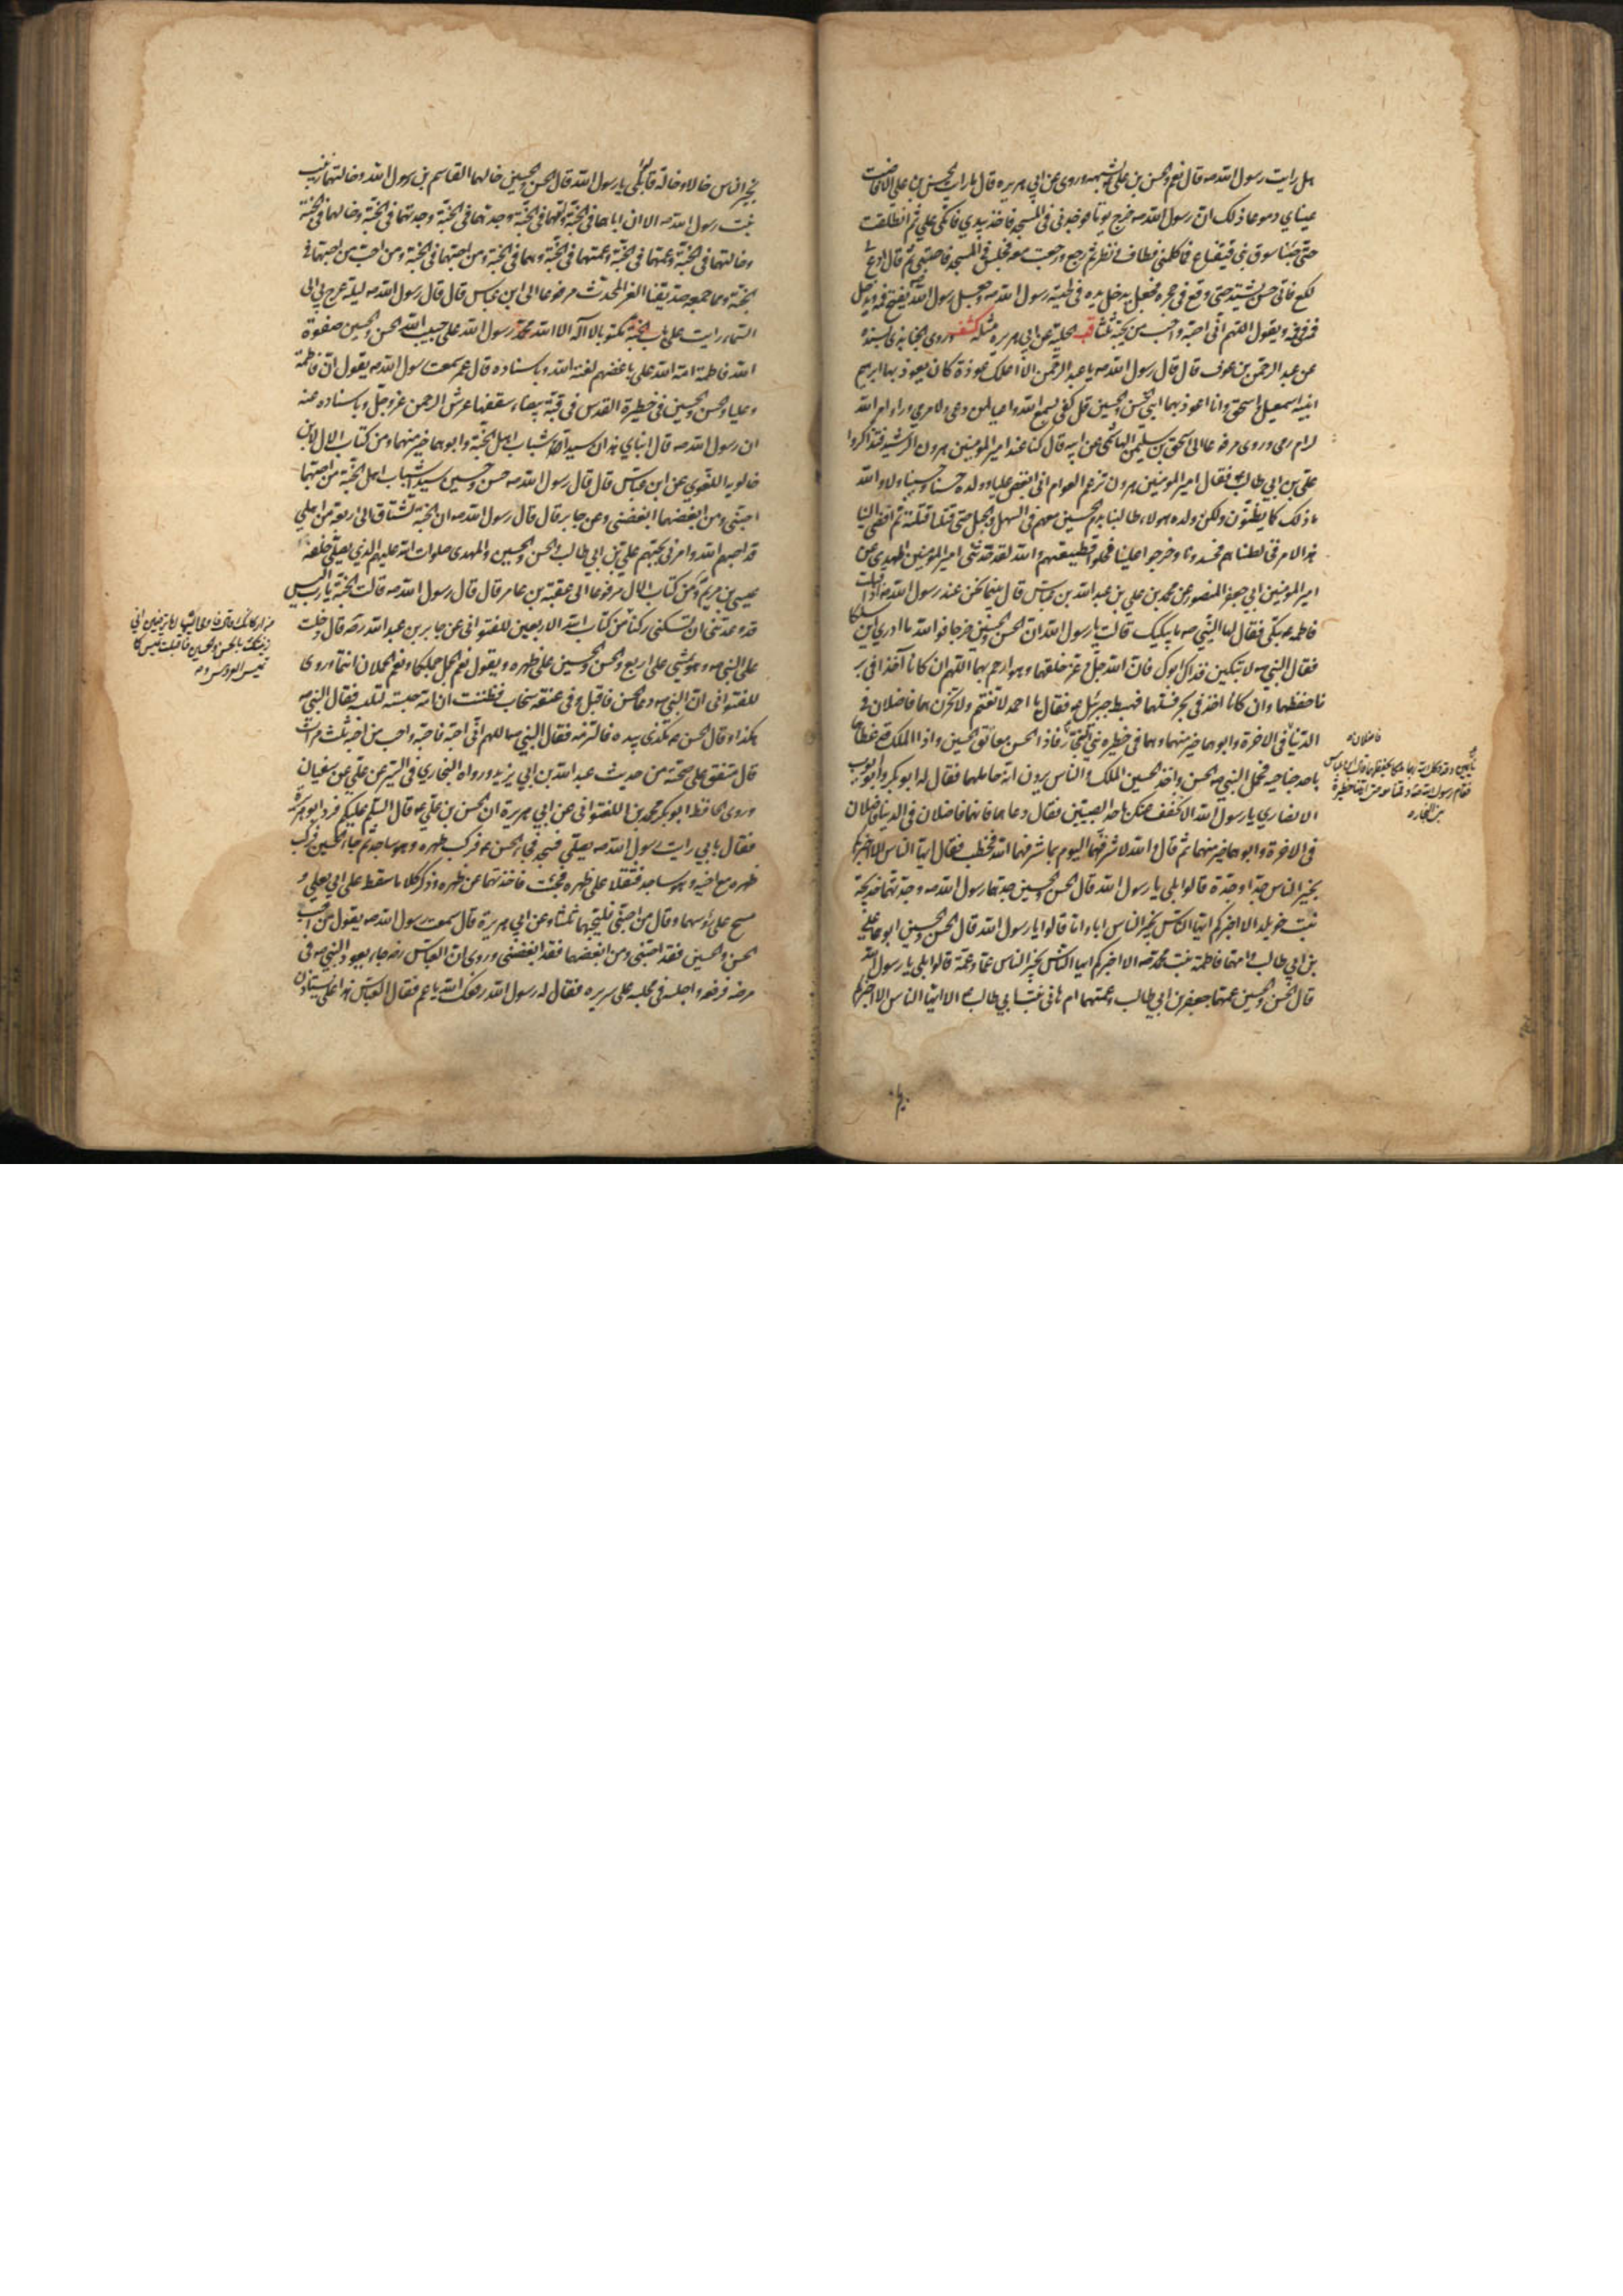 هل رايت رسول الله ص قال نعم والحسن بن علي يشبهه وروى عن ابي هريره قال ما رايت الحسن بن علي الا فاضت
عيناي دموعا وذلك ان رسول الله ص خرج يوما فوجدني في المسجد فاخذ بيدي فاتكى علي ثم انطلقت
حتى جئنا سوق بني قينقاع فما كلمني فطاف فنظر ثم رجع ورجعت معه فجلس في المسجد فاحتبى ثم قال ادع لي
لكع فاتى حسن يشتد حتى وقع في حجره فجعل يدخل يده في لحية رسول الله ص وجعل رسول الله ص يفتح فمه ويدخل
فمه في فمه ويقول اللهم اني احبه واحب من يحبه ثلثا قب الحلية عن ابي هريره مثله كشف وروى الجنابذي بسنده
عن عبد الرحمن بن عوف قال قال رسول الله ص يا عبد الرحمن الا اعلمك عوذة كان يعوذ بها ابرهيم
ابنيه اسمعيل واسحق وانا اعوذ بهما ابني الحسن والحسين قل كفى بسمع الله واعيا لمن دعى ولا مرمى وراء امر الله
لرام رمى وروى مرفوعا الى اسحق بن سليمن الهاشمي عن ابيه قال كنا عند امير المومنين هرون الرشيد فتذاكروا
علي بن ابي طالب ع فقال امير المومنين هرون تزعم العوام اني ابغض عليا وولده حسنا وحسينا ولا والله
ما ذلك كما يظنون ولكن ولده هولاء طالبنا بدم الحسين معهم في السهل والجبل حتى قتلنا قتلته ثم افضى الينا
هذا الامر فخالطناهم فحسدونا وخرجوا علينا فحلوا قطيعتهم والله لقد حدثني امير المومنين المهدي عن
امير المومنين ابي جعفر المنصور عن محمد بن علي بن عبد الله بن عباس قال بينما نحن عند رسول الله ص اذ اقبلت
فاطمه ع تبكي فقال لها النبي ص ما يبكيك قالت يا رسول الله ان الحسن والحسين خرجا فوالله ما ادري اين سلكا
فقال النبي ص لا تبكين فداك ابوك فان الله جل وعز خلقهما وهو ارحم بهما اللهم ان كانا اخذا في بر
فاحفظهما وان كانا اخذا في بحر فسلمهما فهبط جبرئيل ع فقال يا احمد لا تغتم ولا تحزن هما فاضلان في
الدنيا في الاخرة وابوهما خير منهما وهما في حظيرة بني النجار فاذا الحسن معانق الحسين واذا الملك قد غطاهما
باحد جناحيه فحمل النبي ص الحسن واخذ الحسين الملك والناس يرون انه حاملهما فقال له ابو بكر وابو ايوب
الانصاري يا رسول الله الا نخفف عنك باحد الصبيين فقال دعاهما فانهما فاضلان في الدنيا فاضلان
في الاخرة وابوهما خير منهما ثم قال والله لاشرفنهما اليوم بما شرفهما الله فخطب فقال ايها الناس الا اخبركم
بخير الناس جدا وجدة قالوا بلى يا رسول الله قال الحسن والحسين جدهما رسول الله ص وجدتهما خديجة
بنت خويلد الا اخبركم ايها الناس بخير الناس ابا واما قالوا يا رسول الله قال الحسن والحسين ابوهما علي
بن ابي طالب وامهما فاطمة بنت محمد ص الا اخبركم ايها الناس بخير الناس عما وعمة قالوا بلى يا رسول الله
قال الحسن والحسين عمهما جعفر بن ابي طالب وعمتهما ام هاني بنت ابي طالب الا ايها الناس الا اخبركم
فاضلان
فقام رسول الله ص وقمنا معه حتى اتينا حظيرة
بني النجار
بخير الناس خالا وخالة قالوا بلى يا رسول الله قال الحسن والحسين خالهما القاسم بن رسول الله وخالتهما زينب
بنت رسول الله ص الا ان اباهما في الجنة وامهما في الجنة وجدهما في الجنة وجدتهما في الجنة وخالهما في الجنة
وخالتهما في الجنة وعمهما في الجنة وعمتهما في الجنة وهما في الجنة ومن احبهما في الجنة ومن احب من احبهما في
الجنة ومما جمعه صديقنا العز المحدث مرفوعا الى ابن عباس قال قال رسول الله ص ليلة عرج بي الى
السماء رايت على باب الجنة مكتوبا لا اله الا الله محمد رسول الله علي حبيب الله الحسن والحسين صفوة
الله فاطمة امة الله على باغضهم لعنة الله وباسناده قال عمر سمعت رسول الله ص يقول ان فاطمة
وعليا والحسن والحسين في حظيرة القدس في قبة بيضاء سقفها عرش الرحمن عز وجل وباسناده عنه
ان رسول الله ص قال ابناي هذان سيدا شباب اهل الجنة وابوهما خير منهما ومن كتاب الال لابن
خالويه اللغوي عن ابن عباس قال قال رسول الله ص حسن وحسين سيدا شباب اهل الجنة من احبهما
احبني ومن ابغضهما ابغضني وعن جابر قال قال رسول الله ص ان الجنة تشتاق الى اربعة من اهلي
قد احبهم الله وامرني بحبهم علي بن ابي طالب والحسن والحسين والمهدي صلوات الله عليهم الذي يصلي خلفه
عيسى بن مريم ومن كتاب الال مرفوعا الى عقبة بن عامر قال قال رسول الله ص قالت الجنة يا رب اليس
قد وعدتني ان تسكنني ركنا ومن كتاب الاربعين للفتواني عن جابر بن عبد الله رضه قال دخلت
على النبي ص وهو يمشي على اربع والحسن والحسين على ظهره ويقول نعم الجمل جملكما ونعم الحملان انتما وروى
للفتواني ان النبي ص دعا الحسن فاقبل وفي عنقه سخاب فظننت ان امه حبسته لتلبسه فقال النبي ص
هكذا وقال الحسن ع هكذا بيده فالتزمه فقال النبي ص اللهم اني احبه فاحبه واحب من احبه ثلث مرات
قال متفق على صحته من حديث عبد الله بن ابي يزيد ورواه البخاري في السير عن علي عن سفيان
وروى الحافظ ابو بكر محمد بن اللفتواني عن ابي هريرة ان الحسن بن علي ع قال السلام عليكم فرد ابو هريرة
فقال بابي رايت رسول الله ص يصلي فسجد فجاء الحسن ع فركب ظهره وهو ساجد ثم جاء الحسين فركب
ظهره مع اخيه وهو ساجد فثقلا على ظهره فجئت فاخذتهما عن ظهره وذكر كلاما سقط على ابي يعلى و
مسح على رؤسهما وقال من احبني فليحبهما ثلثا وعن ابي هريرة قال سمعت رسول الله ص يقول من احب
الحسن والحسين فقد احبني ومن ابغضهما فقد ابغضني وروى ان العباس رضه جاء يعود النبي ص في
مرضه فرفعه واجلسه في مجلسه على سريره فقال له رسول الله رفعك الله يا عم فقال العباس هذا علي يستاذن
زينتك بالحسن والحسين فاقبلت تميس كما
تميس العروس